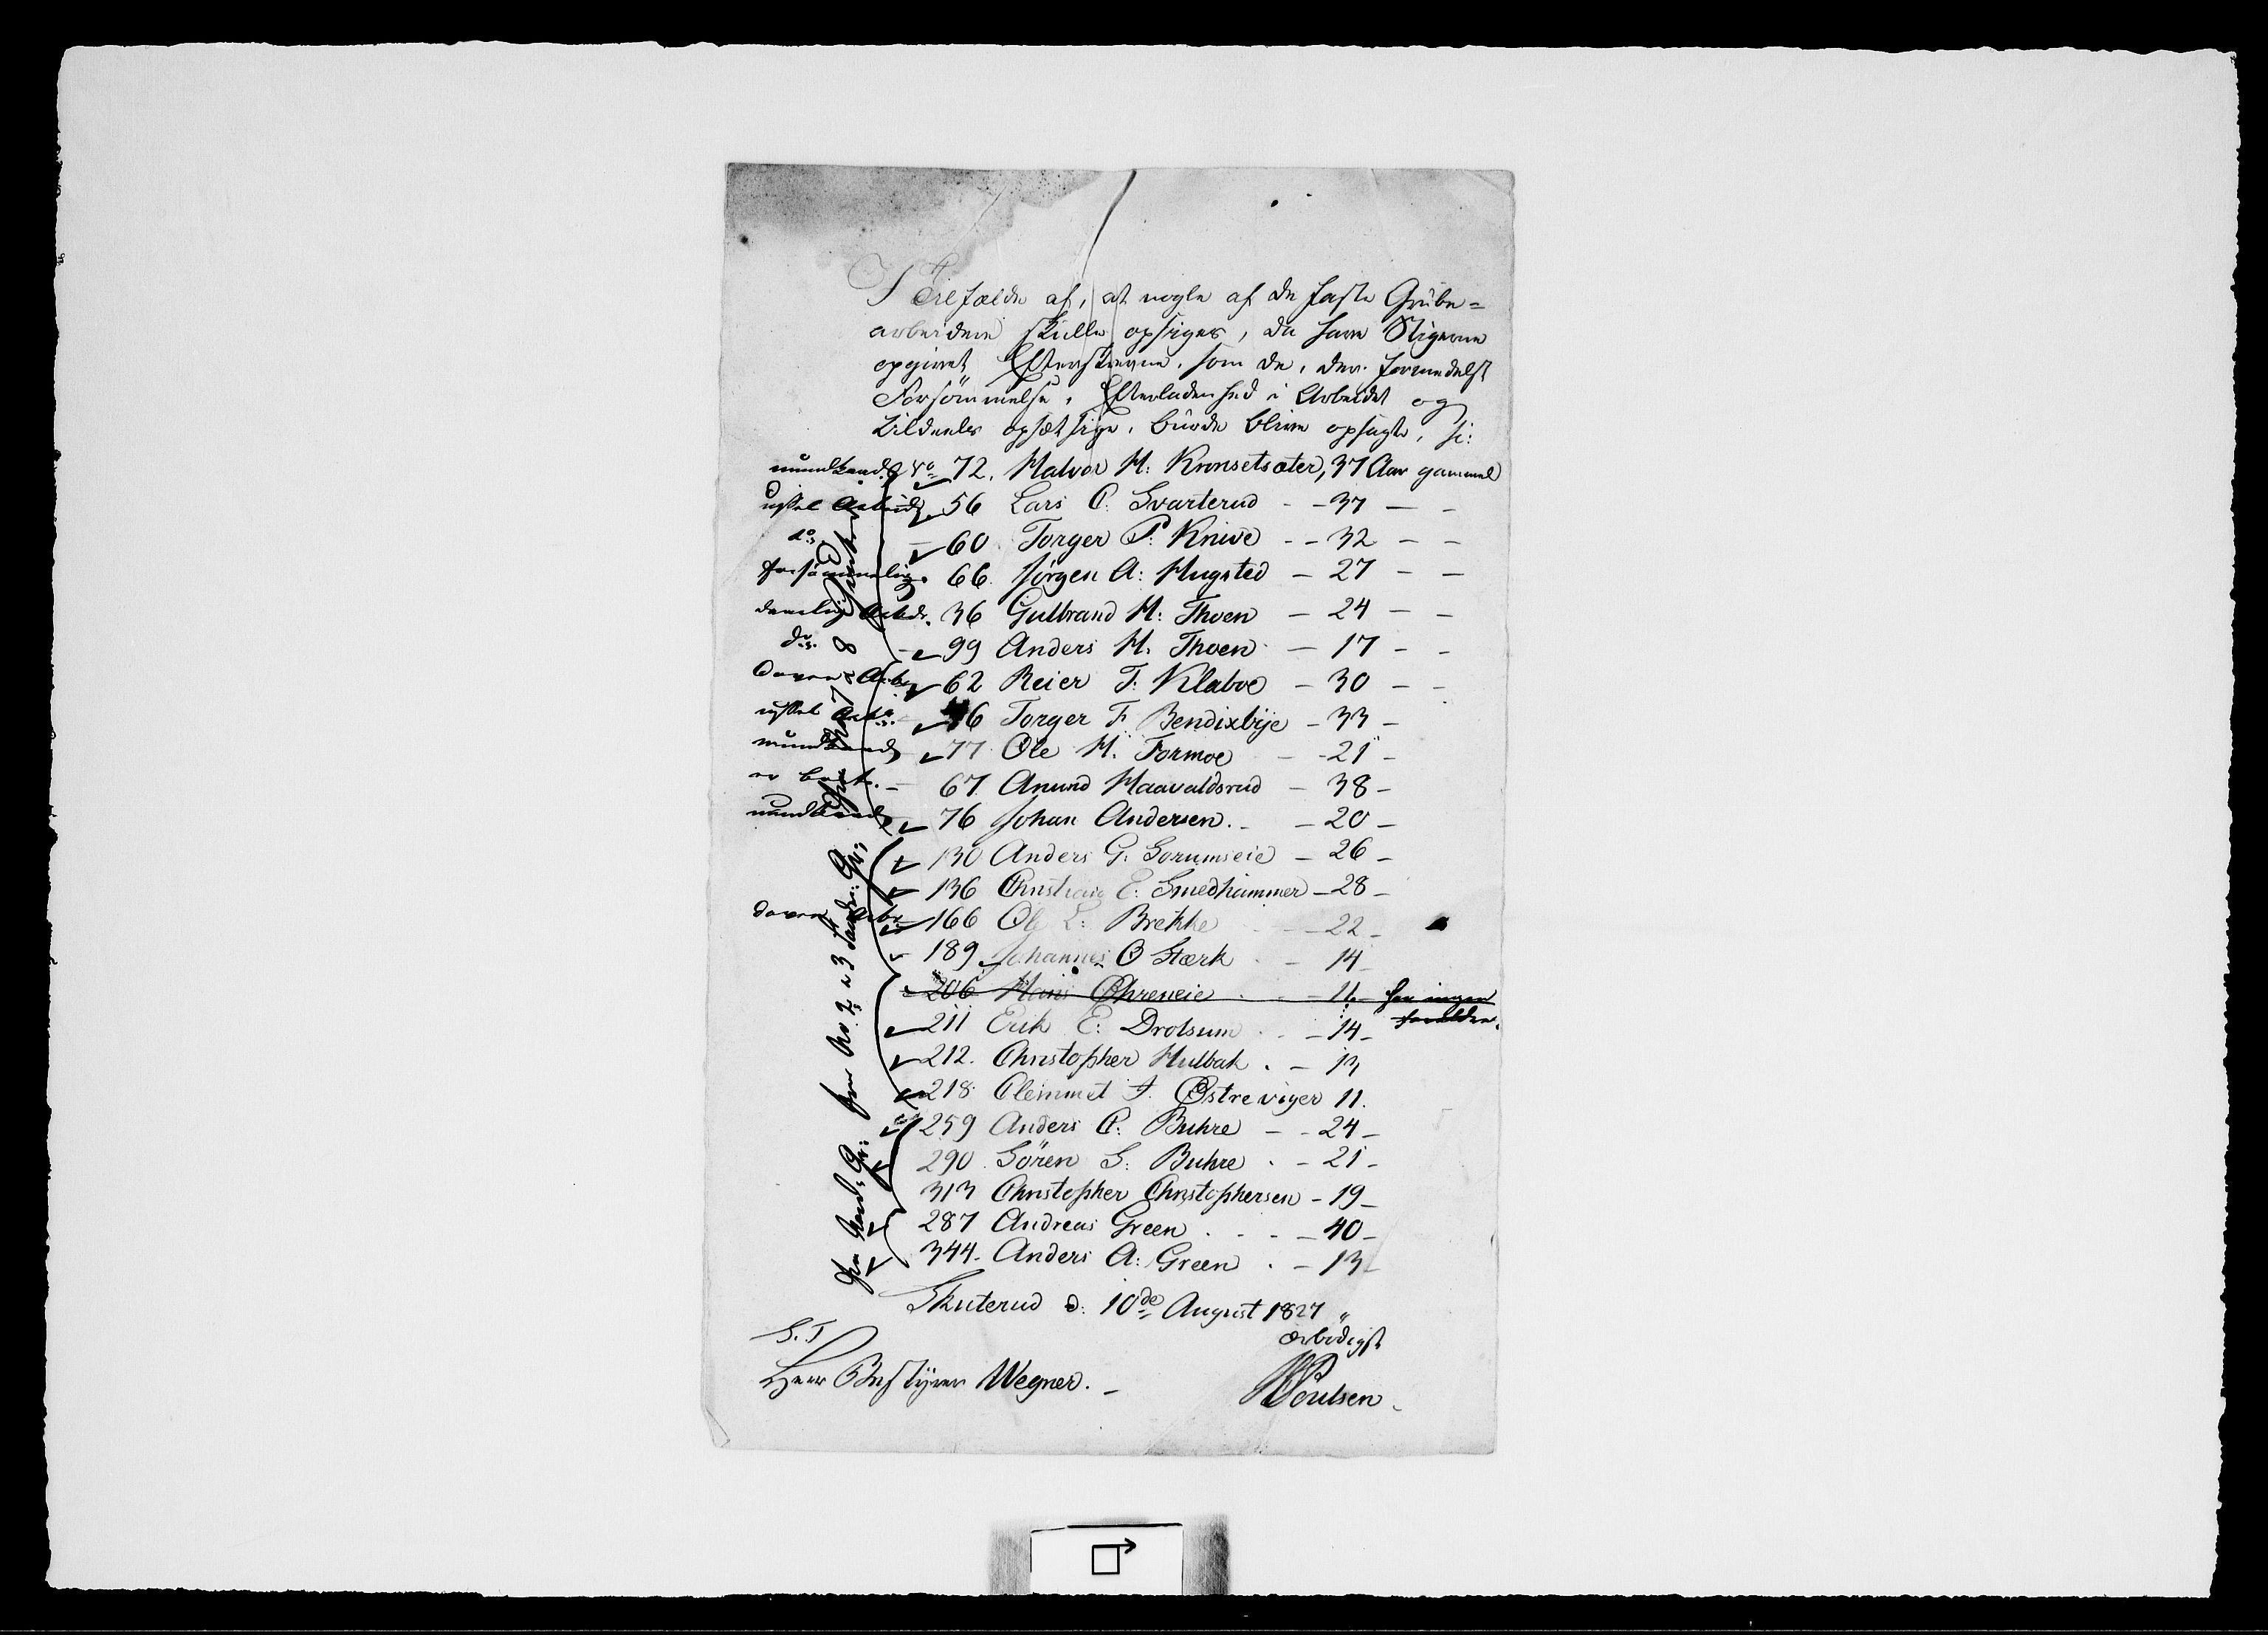 I Tilfælde af, at nogle af de faste Grube=
arbeidere skulle opsiges, da have Stigerne
opgivet Efterskrevne, som de, der formedelst
Forsömmelse, Efterladenhed i Arbeidet og
tildeels opsætsige, burde blive opsagte, s:
mundkaad No 72. Halvor H: Kronsetsæter, 37 Aar gammel
ussel Arbeid. 56 Lars C. Svarterud - - 37 - -
do 60. Torger P: Knive - - 32 - -
forsömmelig. 66. Jörgen A: Hugsted - 27 - -
daarlig Arbdr. 36 Gulbrand H: Thoen - 24 - -
do. 99 Anders H. Thoen - 17 - -
doven Arb. 62 Reier T: Klabve - 30 - -
ussel Arb. 46 Torger F. Bendixbye - 33 -
mundkaad 77 Ole H. Formoe - 21 -
er bort. - 67. Anund Haavaldsrud - 38 -
mundkaad 76 Johan Andersen. - - 20 -
130 Anders G: Sorumseie - 26 -
136 Christian E: Smedhammer - 28 -
doven Arbr 166 Ole L: Brekke - 22 -
189 Johannes O Stærk - 14
206 Hans Øhreneie - 11. har ingen
Forældre.
211 Erik E: Drolsum - 14 -
212. Christopher Hulbak . - 13
218. Clemmet J. Østreviger 11.
259 Anders C: Buhre - - 24 -
290. Sören S: Buhre . - 21 -
313 Christopher Christophersen - 19 -
287 Andreas Green . - - 40 -
344. Anders A: Green . - 13 -
Skuterud d: 10de August 1827
ærbödigst
S. T
Herr Bestyrer Wegner. -
Poulsen